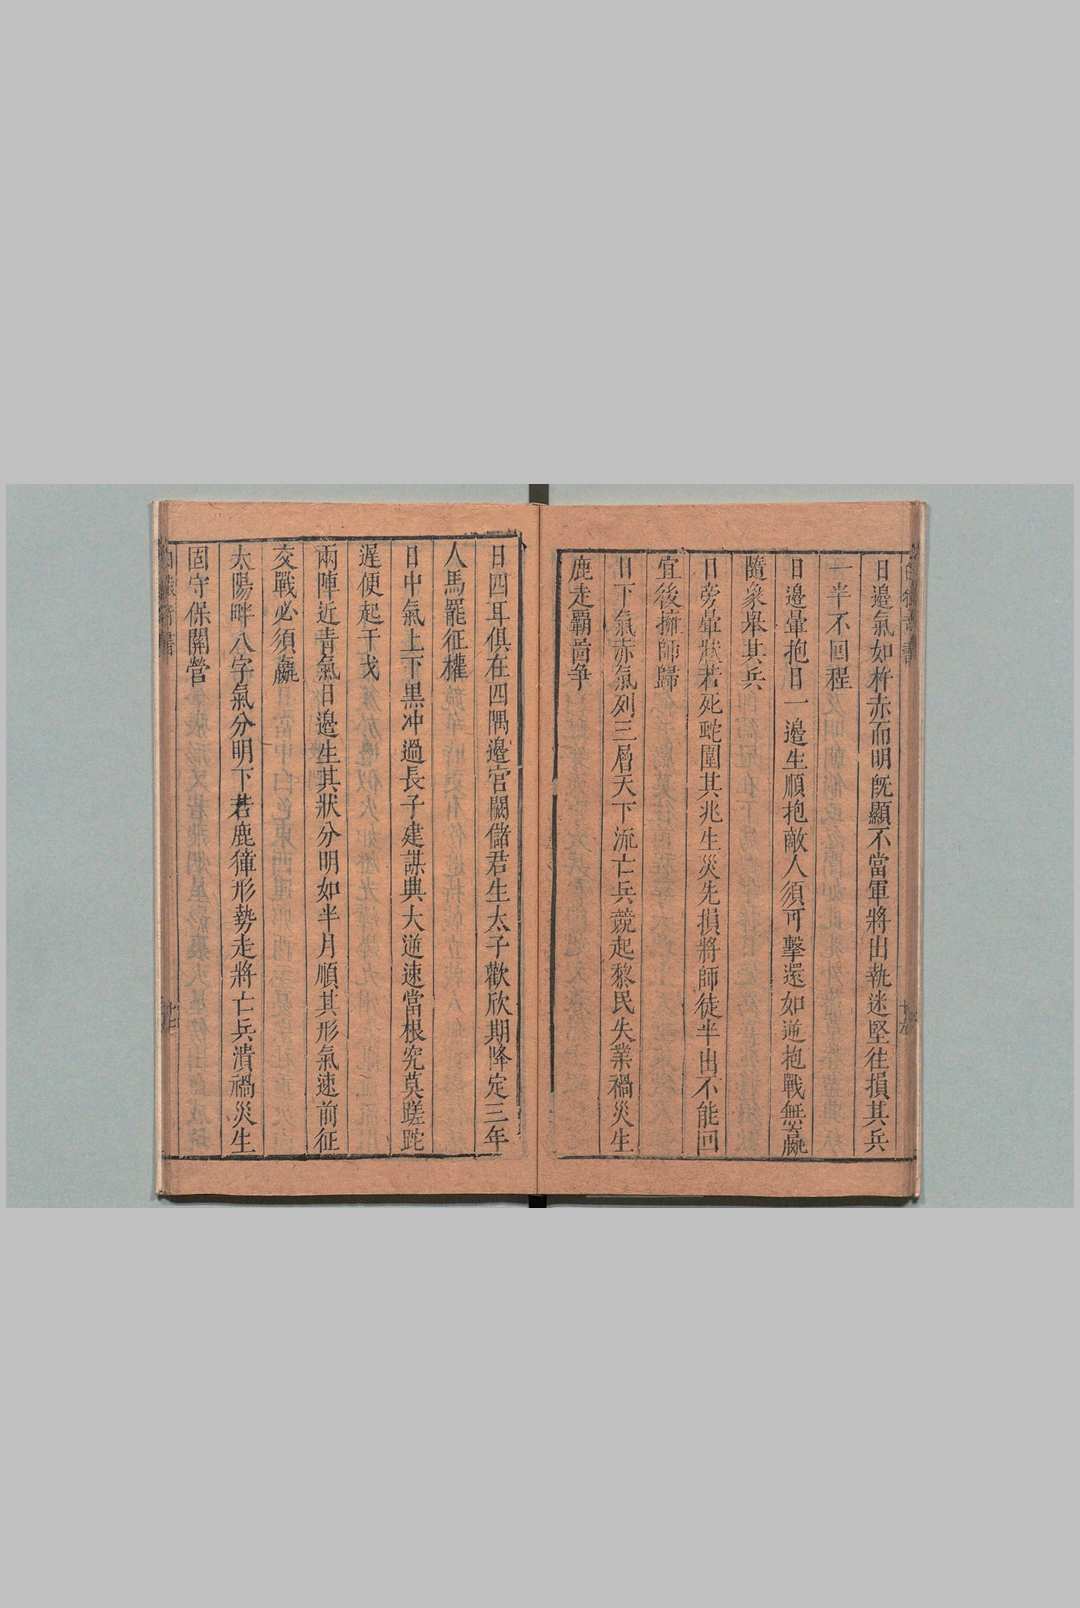 日邉氣如杵赤而明旣顯不當軍將出執迷堅往損其兵
一半不回程
日邉暈抱日一邉生順抱敵人須可擊還如逆抱戰無嬴
隨象舉其兵
日旁暈狀若死虵圍其兆生災先損將師徒半出不能回
宜後擁師歸
日下氣赤氣列三層天下流亡兵競起黎民失業禍災生
鹿走覇啚爭
日四耳俱在四隅邉宫闕儲君生太子歡欣期降定三年
人馬罷征權
日中氣上下黒冲過長子建謀典大逆速當根究莫蹉跎
遲便起干戈
兩陣近青氣日邉生其狀分明如半月順其形氣速前征
交戰必須嬴
太陽畔八字氣分明下若鹿獐形勢走將亡兵潰禍災生
固守保關營